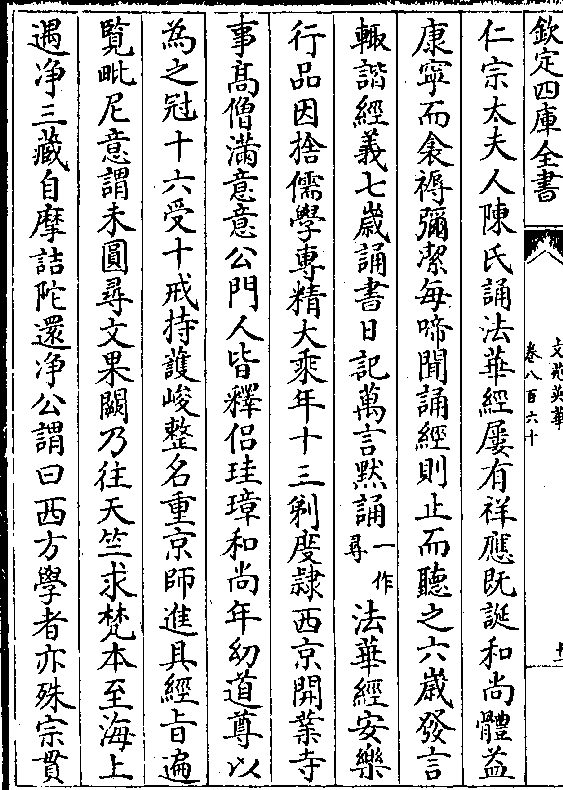 欽定四庫全書
文苑英華
卷八百六十
仁宗太夫人陳氏誦法華經屢有祥應既誕和尚體益
康寧而衾褥彌潔每啼聞誦經則止而聽之六歲發言
輙諧經義七歲誦書日記萬言黙誦一作尋法華經安樂
行品因捨儒學專精大乘年十三剃度隷西京開業寺
事髙僧滿意意公門人皆釋侣珪璋和尚年幼道尊以
為之冠十六受十戒持護峻整名重京師進具經㫖遍
覽毗尼意謂未圓尋文果闕乃往天竺求梵本至海上
遇浄三藏自摩詰陀還浄公謂曰西方學者亦殊宗貫